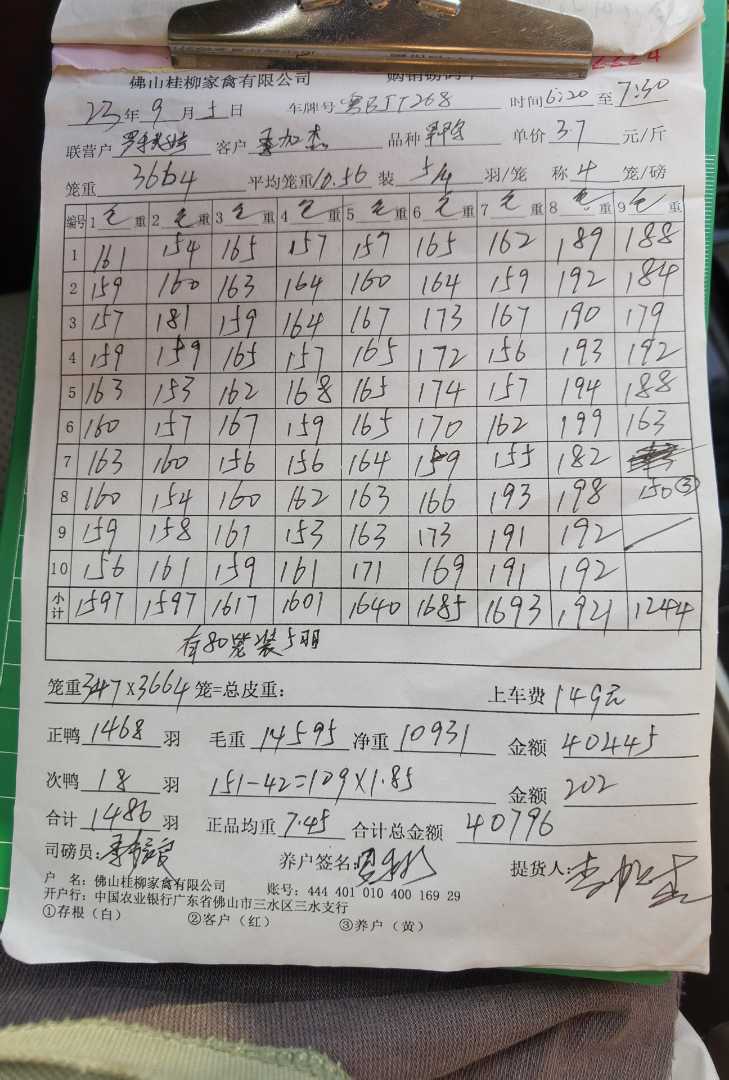 2224
佛山桂柳家禽有限公司
23年9月5日 车牌号 时间6:20至7:30
联营户 客户 品种 单价3.7元/斤
笼重3664 平均笼重10.56 装5/4羽/笼 称4笼/磅
编号 1毛重 2毛重 3毛重 4毛重 5毛重 6毛重 7毛重 8毛重 9毛重
1 161 154 165 157 157 165 162 189 188
2 159 160 163 164 160 164 159 192 184
3 157 181 159 164 167 173 167 190 179
4 159 159 165 157 165 172 156 193 192
5 163 153 162 168 165 174 157 194 188
6 160 157 167 159 165 170 162 199 163
7 163 160 156 156 164 159 155 182
8 160 154 160 162 163 166 193 198 150③
9 159 158 161 153 163 173 191 192
10 156 161 159 161 171 169 191 192
小计 1597 1597 1617 1601 1640 1685 1693 1921 1244
有80笼装5羽
笼重347×3664笼=总皮重: 上车费149元
正鸭1468羽 毛重14595 净重10931 金额40445
次鸭18羽 151-42=109×1.85 金额202
合计1486羽 正品均重7.45 合计总金额40796
司磅员: 养户签名: 提货人:
户 名: 佛山桂柳家禽有限公司 账号: 444 401 010 400 169 29
开户行: 中国农业银行广东省佛山市三水区三水支行
①存根(白) ②客户(红) ③养户(黄)